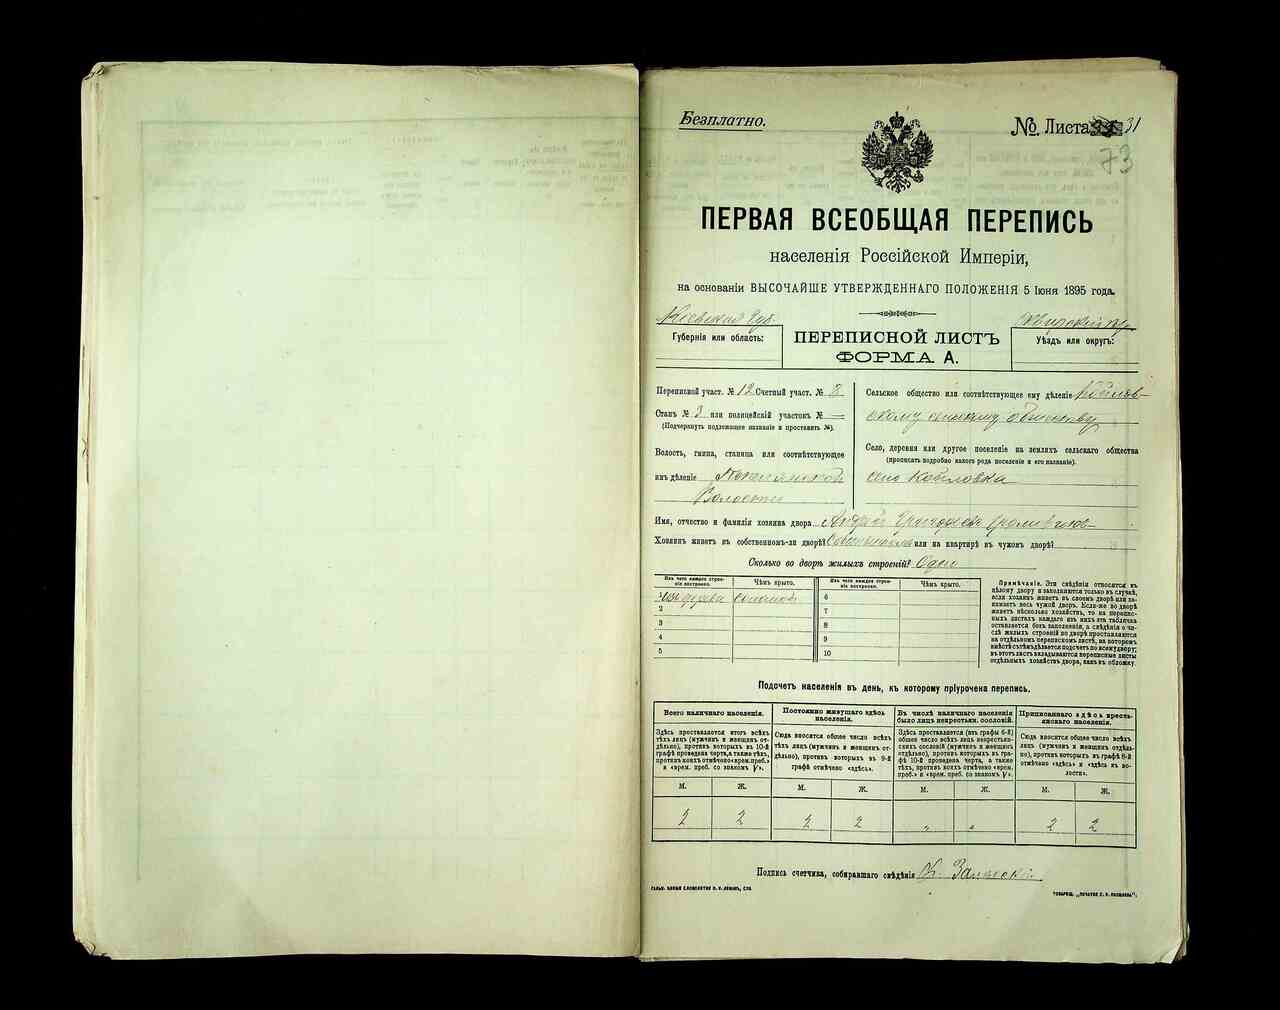 Безплатно.
№. Листа 31
73
ПЕРВАЯ ВСЕОБЩАЯ ПЕРЕПИСЬ
населенія Россійской Имперіи,
на основаніи ВЫСОЧАЙШЕ УТВЕРЖДЕННАГО ПОЛОЖЕНІЯ 5 Іюня 1895 года.
Кіевская губ.
Губернія или область:
ПЕРЕПИСНОЙ ЛИСТЪ
ФОРМА А.
Сквирскій
Уѣздъ или округъ:
Переписной участ. № 12 Счетный участ. № 8
Станъ № 3 или полицейскій участокъ № —
(Подчеркнуть подлежащее названіе и проставить №).
Волость, гмина, станица или соотвѣтствующее
имъ дѣленіе
Волости
Сельское общество или соотвѣтствующее ему дѣленіе
скому сельскому обществу
Село, деревня или другое поселеніе на земляхъ сельскаго общества
(прописать подробно какого рода поселеніе и его названіе).
село Кобиловка
Имя, отчество и фамилія хозяина двора Андрей
Хозяинъ живетъ въ собственномъ-ли дворѣ? или на квартирѣ въ чужомъ дворѣ?
Сколько во дворѣ жилыхъ строеній? Одно
Изъ чего каждое строе-
ніе построено.
Чѣмъ крыто.
Изъ чего каждое строе-
ніе построено.
Чѣмъ крыто.
изъ дерева соломою
6
2
7
3
8
4
9
5
10
Примѣчаніе. Эти свѣдѣнія относятся къ
цѣлому двору и заполняются только въ случаѣ,
если хозяинъ живетъ въ своемъ дворѣ или за-
нимаетъ весь чужой дворъ. Если-же во дворѣ
живетъ нѣсколько хозяйствъ, то на перепис-
ныхъ листахъ каждаго изъ нихъ эта табличка
оставляется безъ заполненія, а свѣдѣнія о чи-
слѣ жилыхъ строеній во дворѣ проставляются
на отдѣльномъ переписномъ листѣ, на которомъ
вмѣстѣ съ тѣмъ дѣлается подсчетъ по всему двору;
въ этотъ листъ вкладываются переписные листы
отдѣльныхъ хозяйствъ двора, какъ въ обложку.
Подсчетъ населенія въ день, къ которому пріурочена перепись.
Всего наличнаго населенія.
Здѣсь проставляется итогъ всѣхъ
тѣхъ лицъ (мужчинъ и женщинъ от-
дѣльно), противъ которыхъ въ 10-й
графѣ проведена черта, а также тѣхъ,
противъ коихъ отмѣчено «врем. преб.»
и «врем. преб. со знакомъ V».
Постоянно живущаго здѣсь
населенія.
Сюда вносится общее число всѣхъ
тѣхъ лицъ (мужчинъ и женщинъ от-
дѣльно), противъ которыхъ въ 9-й
графѣ отмѣчено «здѣсь».
Въ числѣ наличнаго населенія
было лицъ некрестьян. сословій.
Здѣсь проставляется (изъ графы 6-й)
общее число всѣхъ лицъ некрестьян-
скихъ сословій (мужчинъ и женщинъ
отдѣльно), противъ которыхъ въ гра-
фѣ 10-й проведена черта, а также
тѣхъ, противъ коихъ отмѣчено «врем.
преб.» и «врем. преб. со знакомъ V».
Приписаннаго здѣсь кресть-
янскаго населенія.
Сюда вносится общее число всѣхъ
лицъ (мужчинъ и женщинъ отдѣль-
но), противъ которыхъ въ графѣ 8-й
отмѣчено «здѣсь» и «здѣсь въ во-
лости».
М. Ж. М. Ж. М. Ж. М. Ж.
2 2 2 2 „ „ 2 2
Подпись счетчика, собиравшаго свѣдѣнія